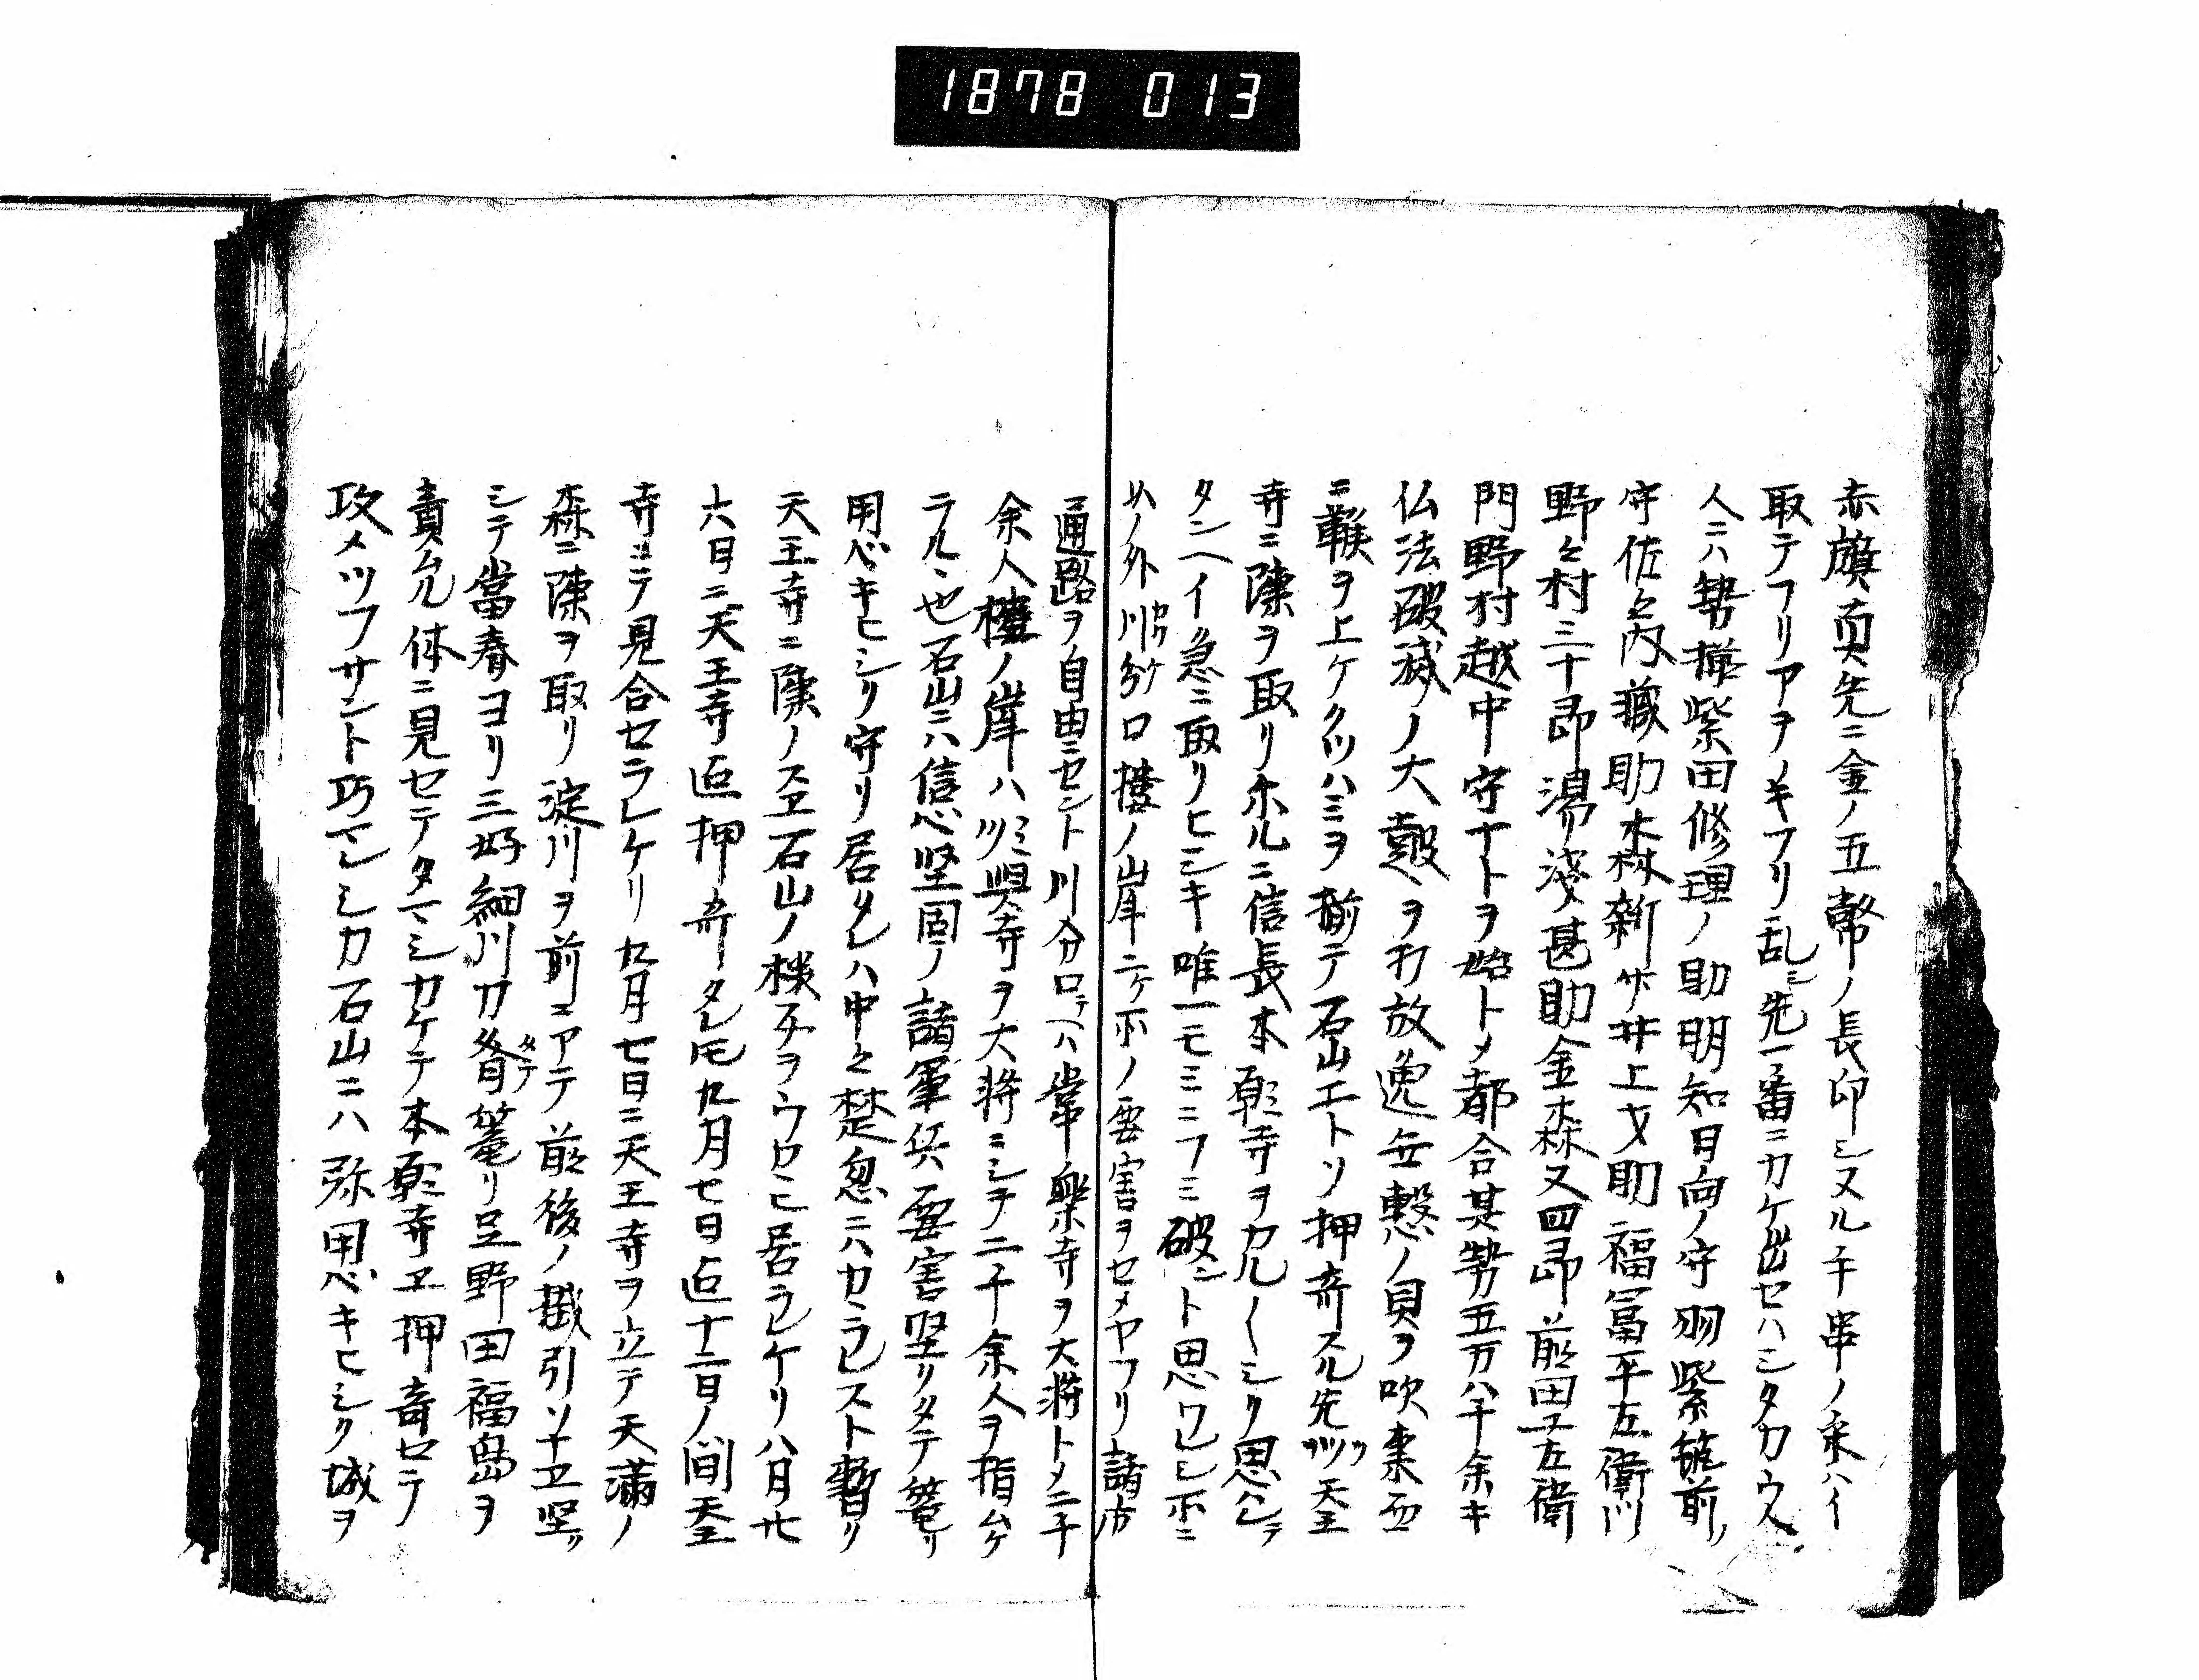 1878 013
赤旗真先ニ金ノ五幣ノ長印シヌル千串ノ采ハイ
取テフリアヲノキフリ乱シ先一番ニカケ出セハシタカウ人
人ニハ勢揃柴田修理ノ助明知日向ノ守羽柴筑前ノ
守佐々内蔵助森新サ井上文助福冨平左衛門
野々村三十郎湯浅甚助金森又四郎前田又左衛
門野村越中守ナトヲ始トメ都合其勢五万八千余キ
仏法破滅ノ大皷ヲ打放逸無慙ノ貝ヲ吹棄西
ニ鞍ヲ上ケクツハミヲ揃テ石山エトソ押寄スル先ツ天王
寺ニ陳ヲ取リホルニ信長本願寺ヲカル〳〵シク思召テ
タンヘイ急ニ取リヒシキ唯一モミニフミ破ント思ワレシ所ニ
以ノ外川口分口樓ノ岸ニケ所ノ要害ヲセメヤフリ諸方
通路ヲ自由ニセント川分口ヘハ常樂寺ヲ大将トメ二千
余人樓ノ岸ハ興寺ヲ大将ニシテ二千余人ヲ指ムケ
ラル丶也石山ニハ信心堅固ノ諸軍兵要害堅リタテ篭リ
用心キヒシク守リ居タレハ中々楚忽ニハカラレスト暫ク
天王寺ニ陳ノスヱ石山ノ様子ヲウカヒ居ラレケリ八月廿
六日ニ天王寺迄押寄タレ𪜈九月七日迄十二日ノ間天王
寺ニテ見合セラレケリ九月七日ニ天王寺ヲ立テ天滿ノ
森ニ陳ヲ取リ淀川ヲ前エアテ前後ノ掛引ソナヱ堅ク
シテ當春ヨリ三好細川カ楯篭リ足野田福島ヲ
責ル体ニ見セテタマシカケテ本願寺ヱ押寄セテ
攻メツフサント巧マレシカ石山ニハ弥用心キヒシク城ヲ